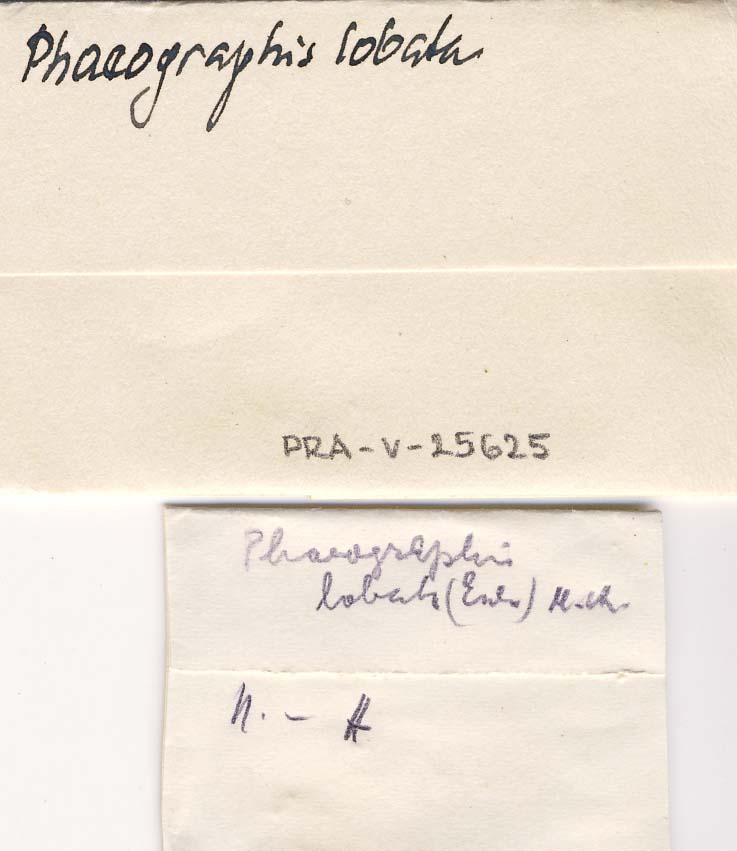 Phaeographis lobata
PRA-V-25625
Phaeographis
lobata (Eschw)
N. - A